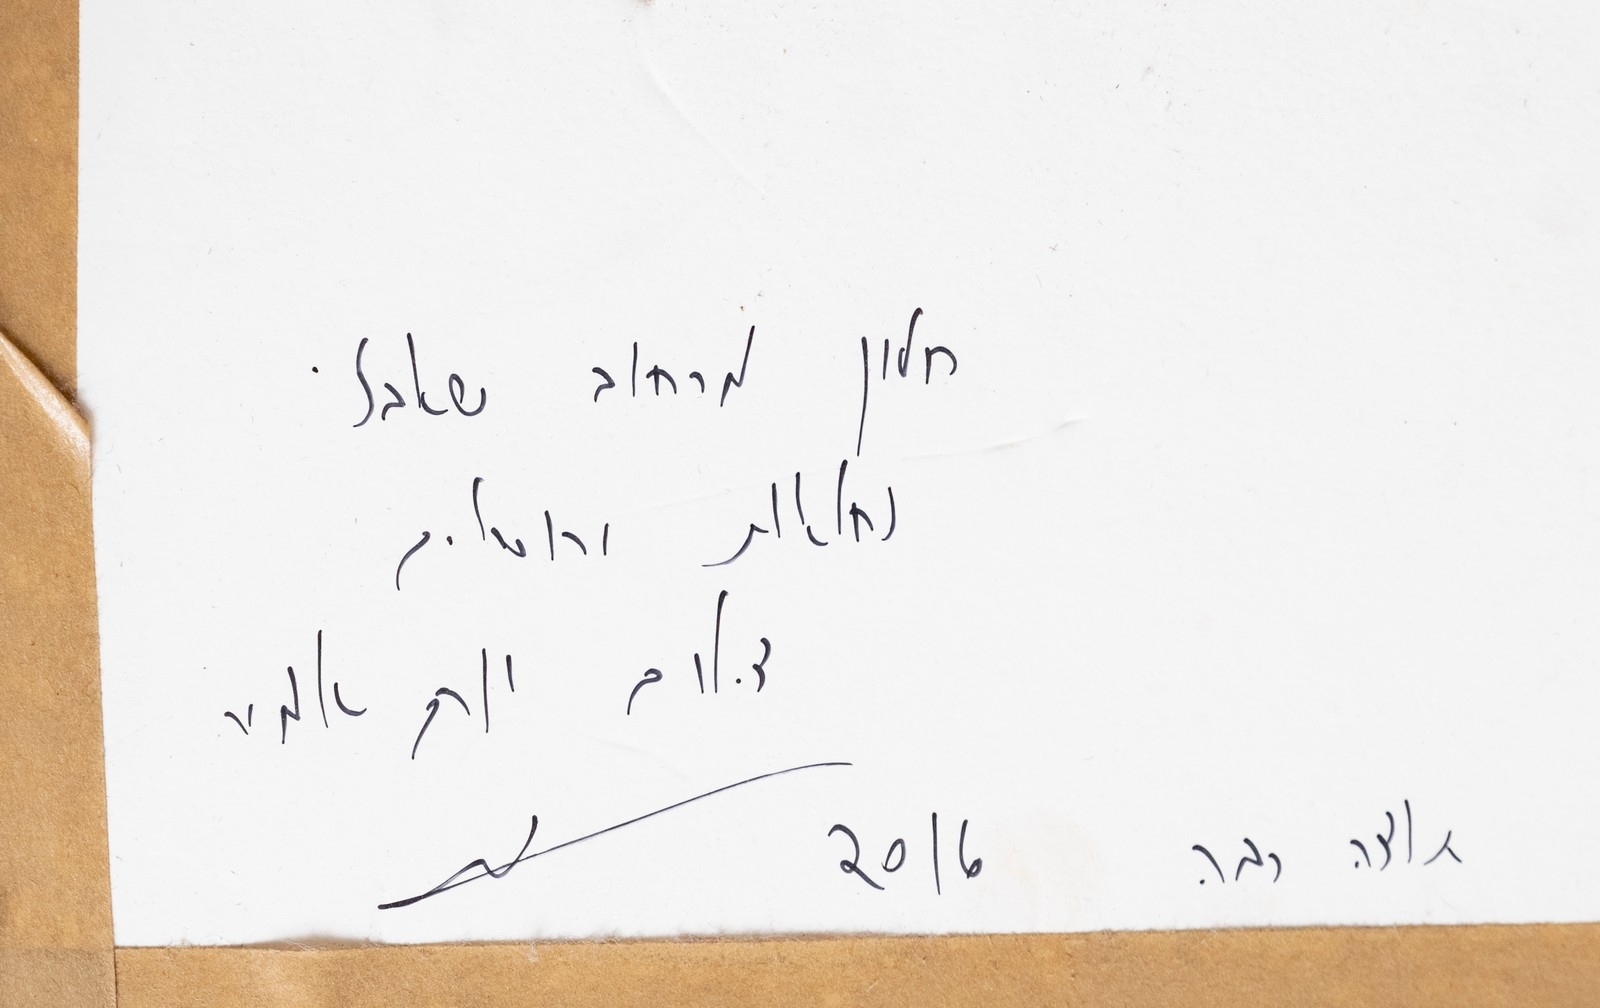 חלון מרחוב שאבזי
נחלאות ירושלים
צילום יורם אמיר
רבה 2016